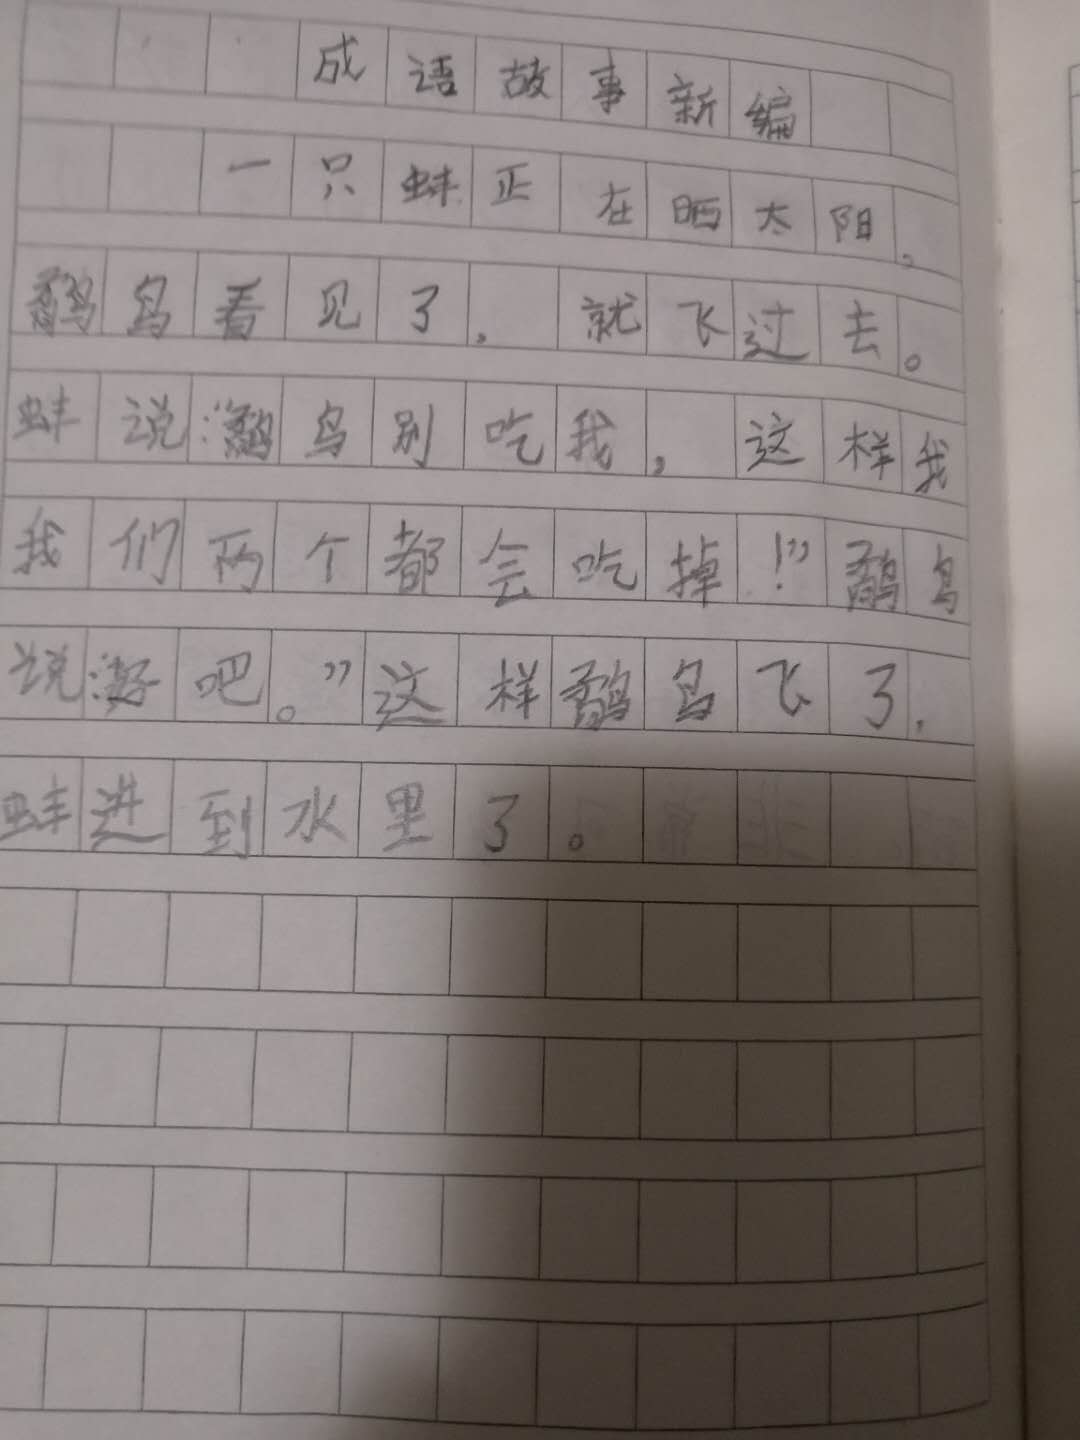 成语故事新编
一只蚌正在晒太阳,
鹬鸟看见了,就飞过去。
蚌说:“鹬鸟别吃我,这样我
我们两个都会吃掉!”鹬鸟
说:“好吧。”这样鹬鸟飞了,
蚌进到水里了。